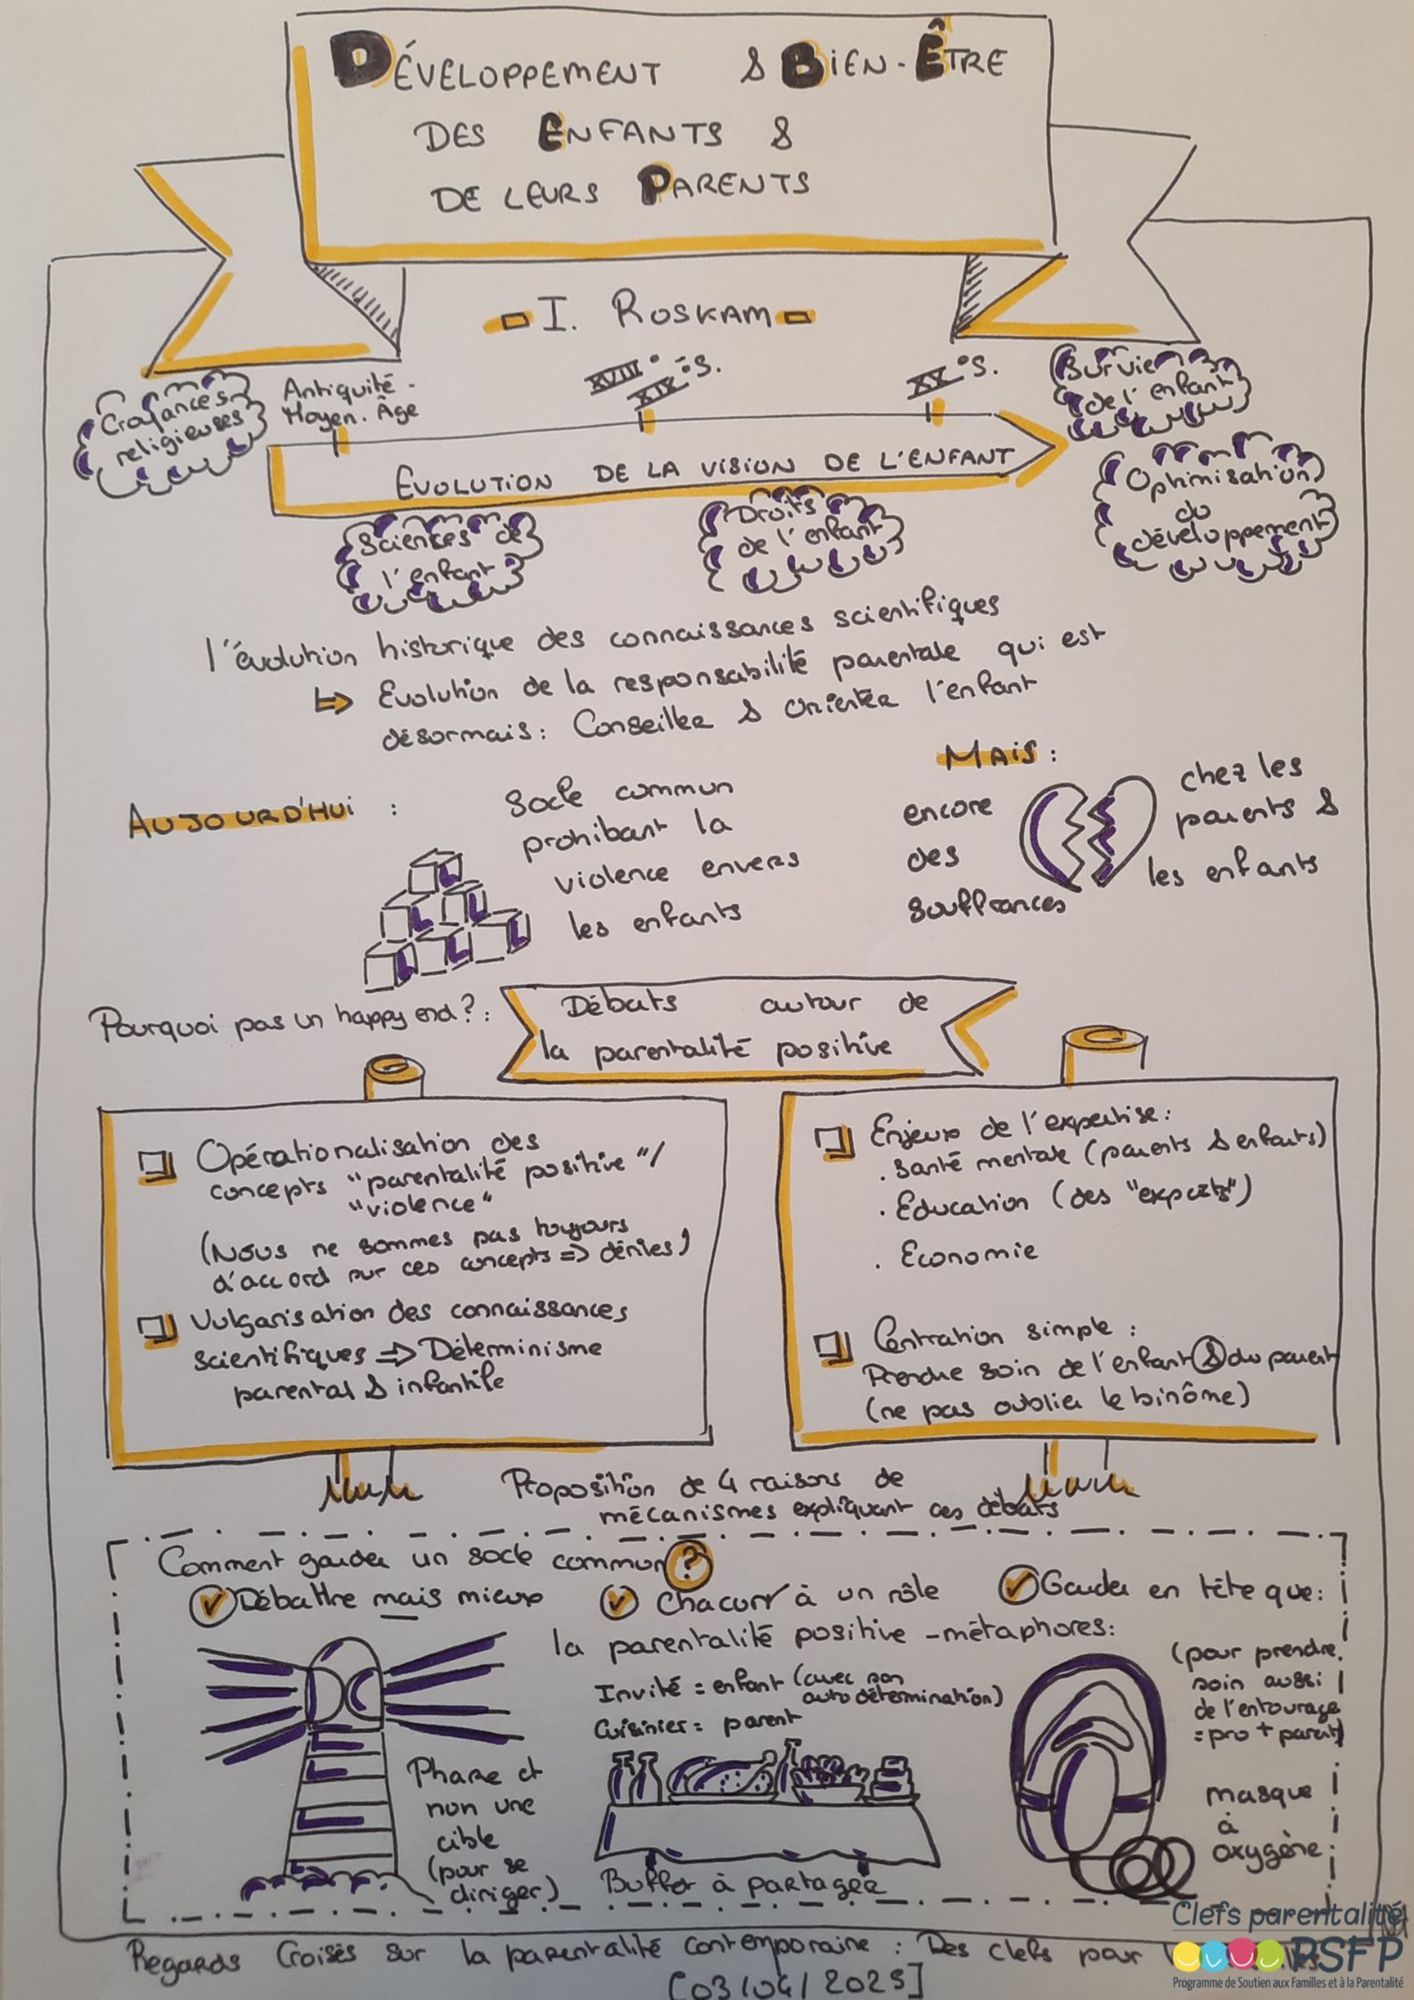 DÉVELOPPEMENT & BIEN-ÊTRE
DES ENFANTS &
DE LEURS PARENTS
I. ROSKAM
Croyances
religieuses
Antiquité -
Moyen-Âge
XVIII°
XIX°S.
XX°S.
Survie
de l'enfant
EVOLUTION DE LA VISION DE L'ENFANT
Optimisation
du
développement
Sciences de
l'enfant
Droits
de l'enfant
l'évolution historique des connaissances scientifiques
↳ Evolution de la responsabilité parentale qui est
désormais : Conseiller & orienter l'enfant
AUJOURD'HUI :
Socle commun
prohibant la
violence envers
les enfants
MAIS :
encore
des
souffrances
chez les
parents &
les enfants
Pourquoi pas un happy end ? :
Débats autour de
la parentalité positive
Opérationalisation des
concepts "parentalité positive"/
"violence"
(Nous ne sommes pas toujours
d'accord sur ces concepts ⇒ dérives)
Vulgarisation des connaissances
scientifiques ⇒ Déterminisme
parental & infantile
Enjeux de l'expertise :
. Santé mentale (parents & enfants)
. Education (des "experts")
. Economie
Centration simple :
Prendre soin de l'enfant & du parent
(ne pas oublier le binôme)
Proposition de 4 raisons de
mécanismes expliquant ces débats
Comment garder un socle commun ?
Débattre mais mieux
Chacun à un rôle
Garder en tête que :
la parentalité positive - métaphores :
Phare et
non une
cible
(pour se
diriger)
Invité = enfant (avec son
autodétermination)
Cuisinier = parent
Buffet à partager
(pour prendre
soin aussi
de l'entourage
= pro + parent)
masque
à
oxygène
Regards Croisés sur la parentalité contemporaine : Des clefs pour
[03/04/2023]
Clefs parentalité
PSFP
Programme de Soutien aux Familles et à la Parentalité